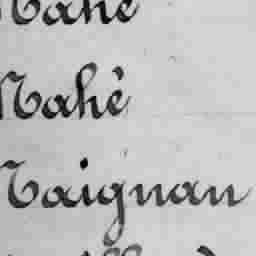 Mahé
Mahé
Maignan